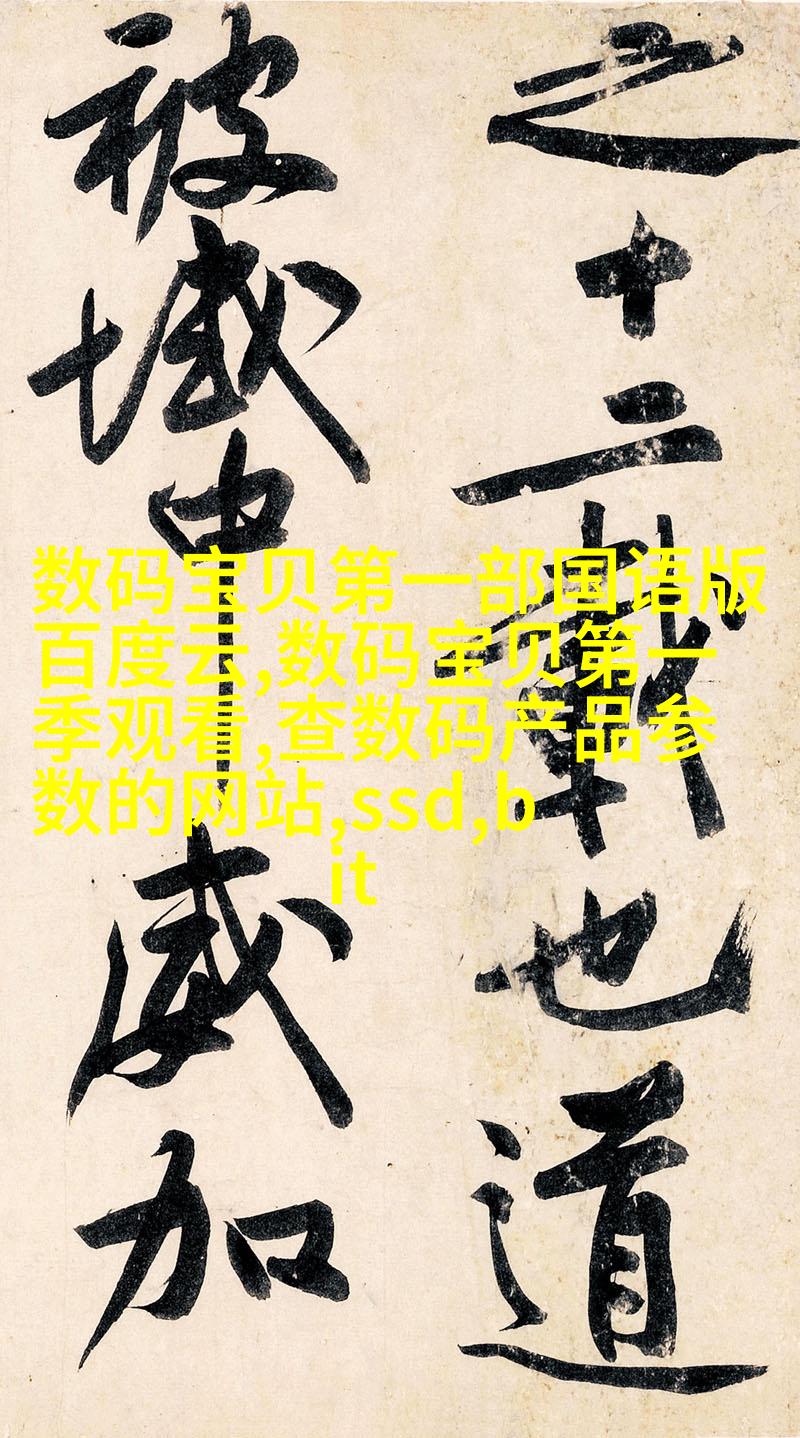 之十二載也道
被域中威加
数码宝贝第一部国语版
百度云,数码宝贝第一
季观看,查数码产品参
数的网站,ssd,b
it